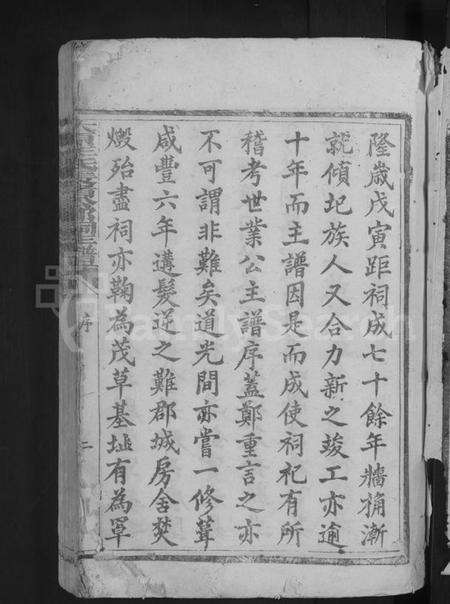 隆歲戊寅距祠成七十餘年牆桷漸
就傾圮族人又合力新之竣工亦逾
十年而主譜因是而成使祠祀有所
稽考世業公主譜序蓋鄭重言之亦
不可謂非難矣道光間亦嘗一修葺
咸豐六年遘髮逆之難郡城房舍焚
燬殆盡祠亦鞠為茂草基址有為軍
序
二
FamilySearch